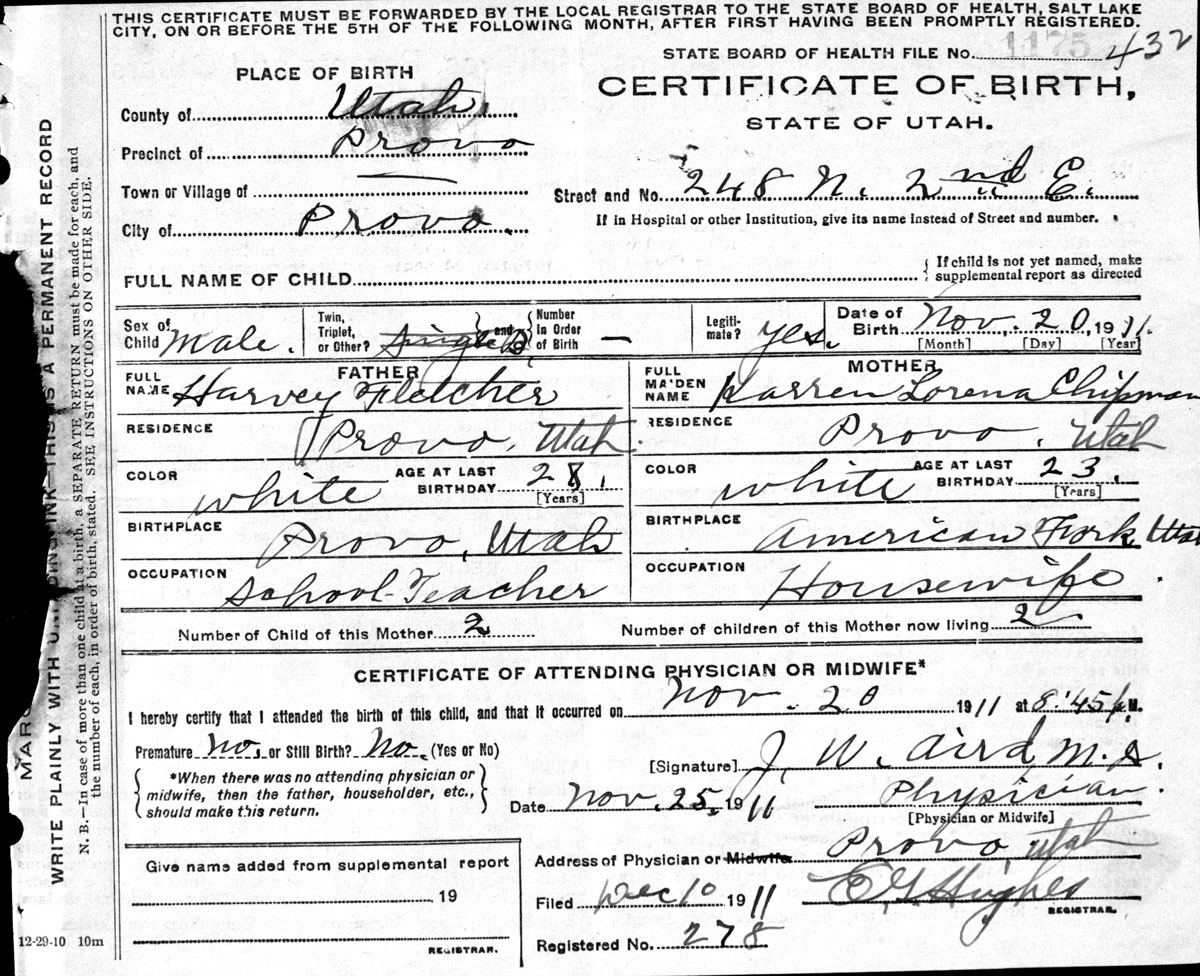 THIS CERTIFICATE MUST BE FORWARDED BY THE LOCAL REGISTRAR TO THE STATE BOARD OF HEALTH, SALT LAKE
CITY, ON OR BEFORE THE 5TH OF THE FOLLOWING MONTH, AFTER FIRST HAVING BEEN PROMPTLY REGISTERED.
STATE BOARD OF HEALTH FILE No. 1175 432
PLACE OF BIRTH
CERTIFICATE OF BIRTH,
STATE OF UTAH.
County of Utah.
Precinct of Provo
Town or Village of —
Street and No. 248 N. 2nd E.
City of Provo.
If in Hospital or other Institution, give its name instead of Street and number.
FULL NAME OF CHILD
{ If child is not yet named, make
supplemental report as directed
Sex of Child Male.
Twin, Triplet, or Other? Single } and { Number in Order of Birth —
Legiti-mate? Yes.
Date of Birth Nov. 20, 1911.
[Month] [Day] [Year]
FATHER
FULL NAME Harvey Fletcher
RESIDENCE Provo, Utah.
COLOR white AGE AT LAST BIRTHDAY 28. [Years]
BIRTHPLACE Provo, Utah
OCCUPATION School-Teacher
MOTHER
FULL MAIDEN NAME Harren Lorena Chipman
RESIDENCE Provo, Utah
COLOR white AGE AT LAST BIRTHDAY 23. [Years]
BIRTHPLACE American Fork Utah
OCCUPATION Housewife.
Number of Child of this Mother 2
Number of children of this Mother now living 2
CERTIFICATE OF ATTENDING PHYSICIAN OR MIDWIFE*
I hereby certify that I attended the birth of this child, and that it occurred on Nov. 20 1911 at 8:45 p.M.
Premature No. or Still Birth? No. (Yes or No)
{ *When there was no attending physician or
midwife, then the father, householder, etc.,
should make this return. }
[Signature] J. W. Aird M.D.
Date Nov. 25, 1911 Physician.
[Physician or Midwife]
Give name added from supplemental report
19
REGISTRAR.
Address of Physician or Midwife Provo, Utah
Filed Dec 10 1911 E G Hughes
REGISTRAR.
Registered No. 278
12-29-10 10m
WRITE PLAINLY WITH UNFADING INK—THIS IS A PERMANENT RECORD
N. B.—In case of more than one child at a birth, a SEPARATE RETURN must be made for each, and
the number of each, in order of birth, stated. SEE INSTRUCTIONS ON OTHER SIDE.